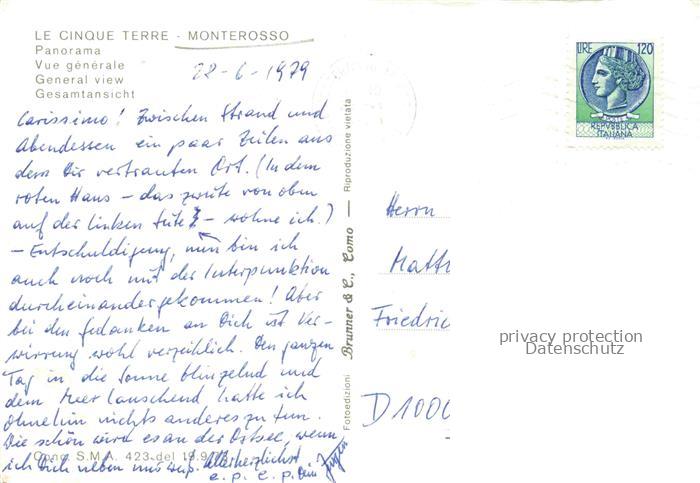 LE CINQUE TERRE - MONTEROSSO
Panorama
Vue générale
General view
Gesamtansicht
28-6-1979
Carissimo! Zwischen Strand und
Abendessen ein paar Zeilen aus
dem Dir vertrauten Ort. (In dem
roten Haus – das zweite von oben
auf der linken Seite – wohne ich.)
– Entschuldigung, nun bin ich
auch noch mit der Interpunktion
durcheinandergekommen! Aber
bei den Gedanken an Dich ist Ver-
wirrung wohl verzeihlich. Den ganzen
Tag in die Sonne blinzelnd und
dem Meer lauschend hatte ich
ohnehin nichts anderes zu tun.
Wie schön wird es an der Ostsee, wenn
ich Dich neben mir
Allerherzlichst
e. p. c. p. Dein Jürgen
Cono S.M.A. 423 del 19.9
Fotoedizioni Brunner & C., Como — Riproduzione vietata
LIRE 120
REPVBBLICA
ITALIANA
Herrn
Matth
Friedric
D 1000
privacy protection
Datenschutz